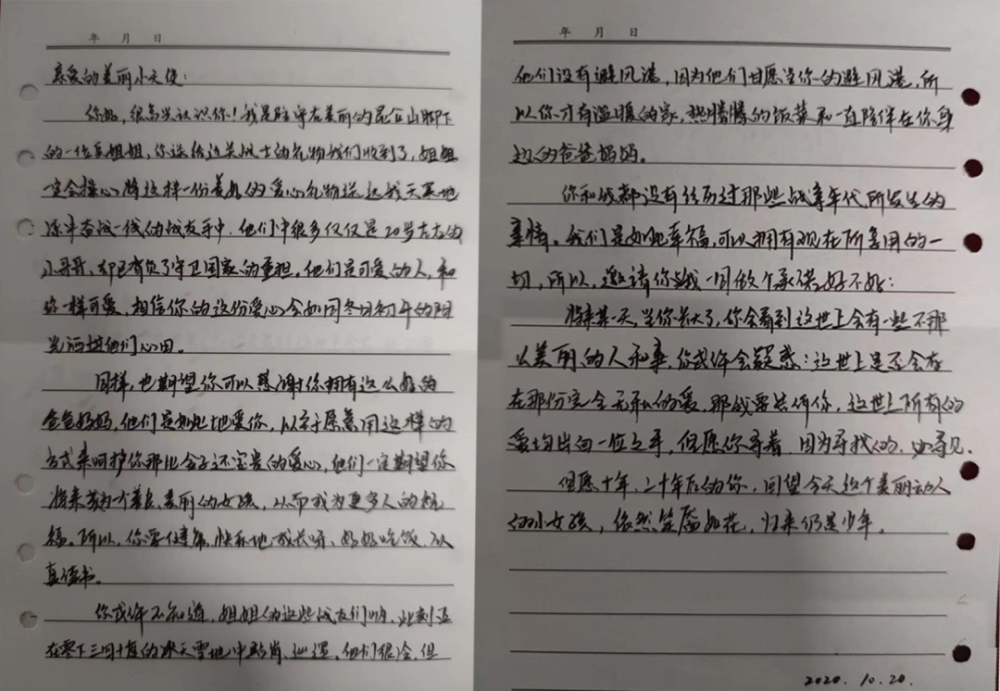 年 月 日
亲爱的美丽小天使：
你好，很高兴认识你！我是驻守在美丽的昆仑山脚下
的一位兵姐姐，你送给边关战士的礼物我们收到了，姐姐
一定会接心将这样一份美好的爱心礼物送达我天寒地
冻中奋战一线的战友手中，他们中很多仅仅是20岁左右的
小哥哥，却已肩负了守卫国家的重担，他们是可爱的人，和
你一样可爱，相信你的这份爱心会如同冬日初升的阳
光洒进他们心田。
同样，也期望你可以感谢你拥有这么好的
爸爸妈妈，他们是如此地爱你，以至于愿意用这样的
方式来呵护你那比金子还宝贵的爱心，他们一定期望你
将来成为一个善良、美丽的女孩，从而成为更多人的祝
福。所以，你要健康、快乐地成长呀，好好吃饭，认
真读书。
你或许不知道，姐姐的这些战友们啊，此刻正
在零下三四十度的冰天雪地中站岗、巡逻，他们很冷，但
年 月 日
他们没有避风港，因为他们甘愿当你的避风港，所
以你才有温暖的家，热腾腾的饭菜和一直陪伴在你身
边的爸爸妈妈。
你和我都没有经历过那些战争年代所发生的
事情。我们是如此幸福，可以拥有现在所享用的一
切，所以，邀请你与我一同做个承诺，好不好：
将来某一天，当你长大了，你会看到这世上会有一些不那
么美丽的人和事，你或许会疑惑：这世上是否会存
在那份完全无私的爱，那我要告诉你，这世上所有的
爱均出自一位之手，但愿你寻着，因为寻找的，必寻见。
但愿十年、二十年后的你，回望今天这个美丽动人
的小女孩，依然笑靥如花，归来仍是少年。
2020.10.20.